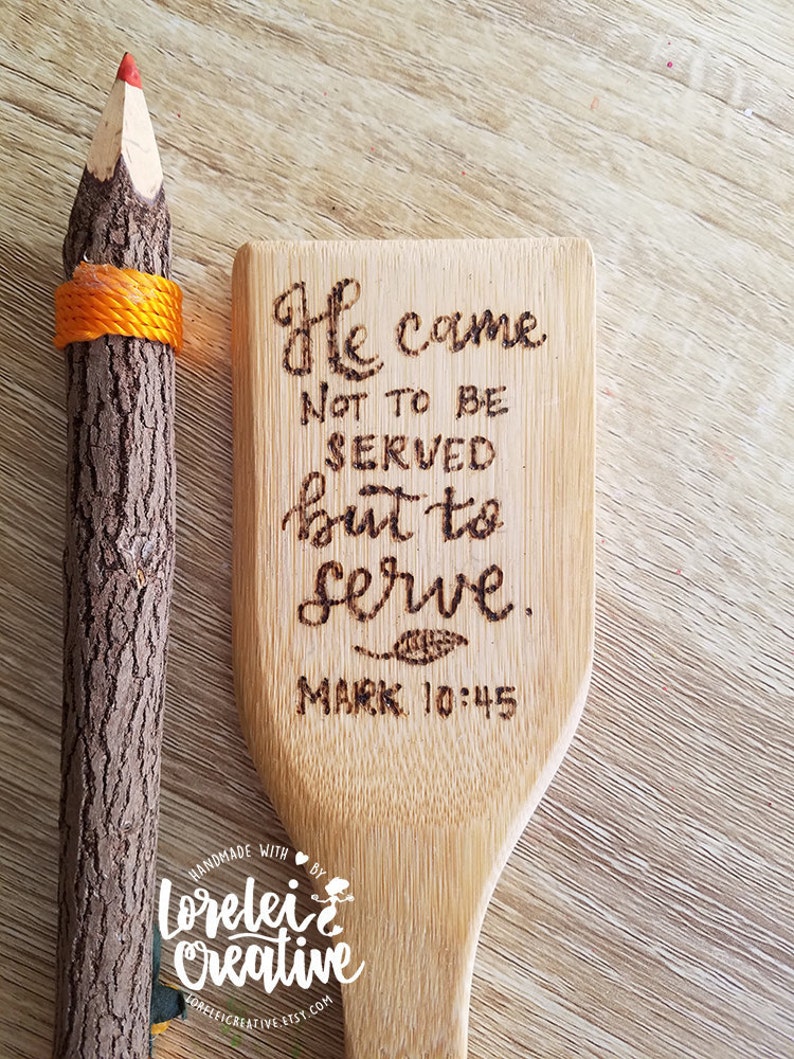 He came
NOT TO BE
SERVED
but to
serve.
MARK 10:45
HANDMADE WITH ♥ BY
Lorelei
Creative
LORELEICREATIVE.ETSY.COM